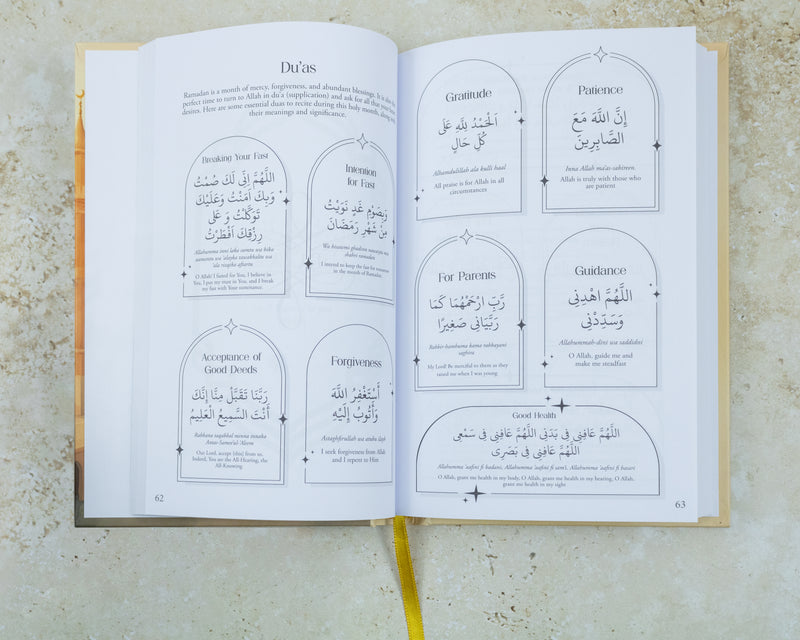 Du'as
Ramadan is a month of mercy, forgiveness, and abundant blessings. It is also the
perfect time to turn to Allah in du'a (supplication) and ask for all that your heart
desires. Here are some essential duas to recite during this holy month, along with
their meanings and significance.
Breaking Your Fast
اللَّهُمَّ اِنِّى لَكَ صُمْتُ
وَبِكَ اٰمَنْتُ وَعَلَيْكَ
تَوَكَّلْتُ وَ عَلَى
رِزْقِكَ اَفْطَرْتُ
Allahumma inni laka sumtu wa bika
aamantu wa 'alayka tawakkaltu wa
'ala rizqika aftartu
O Allah! I fasted for You, I believe in
You, I put my trust in You, and I break
my fast with Your sustenance.
Intention
for Fast
وَبِصَوْمِ غَدٍ نَوَيْتُ
مِنْ شَهْرِ رَمَضَانَ
Wa bisawmi ghadinn nawaytu min
shahri ramadan
I intend to keep the fast for tomorrow
in the month of Ramadan
Acceptance of
Good Deeds
رَبَّنَا تَقَبَّلْ مِنَّا إِنَّكَ
أَنْتَ السَّمِيعُ الْعَلِيمُ
Rabbana taqabbal minna innaka
Antas-Samee'ul-'Aleem
Our Lord, accept [this] from us.
Indeed, You are the All-Hearing, the
All-Knowing
Forgiveness
أَسْتَغْفِرُ اللَّهَ
وَأَتُوبُ إِلَيْهِ
Astaghfirullah wa atubu ilayh
I seek forgiveness from Allah
and I repent to Him
62
Gratitude
اَلْحَمْدُ لِلَّهِ عَلَى
كُلِّ حَالٍ
Alhamdulillah ala kulli haal
All praise is for Allah in all
circumstances
Patience
إِنَّ اللَّهَ مَعَ
الصَّابِرِينَ
Inna Allah ma'as-sabireen.
Allah is truly with those who
are patient
For Parents
رَّبِّ ارْحَمْهُمَا كَمَا
رَبَّيَانِى صَغِيرًا
Rabbir-hamhuma kama rabbayani
saghira
My Lord! Be merciful to them as they
raised me when I was young
Guidance
اللَّهُمَّ اهْدِنِى
وَسَدِّدْنِى
Allahummah-dini wa saddidni
O Allah, guide me and
make me steadfast
Good Health
اللَّهُمَّ عَافِنِى فِى بَدَنِى اللَّهُمَّ عَافِنِى فِى سَمْعِى
اللَّهُمَّ عَافِنِى فِى بَصَرِى
Allahumma 'aafini fi badani, Allahumma 'aafini fi sam'i, Allahumma 'aafini fi basari
O Allah, grant me health in my body, O Allah, grant me health in my hearing, O Allah,
grant me health in my sight
63